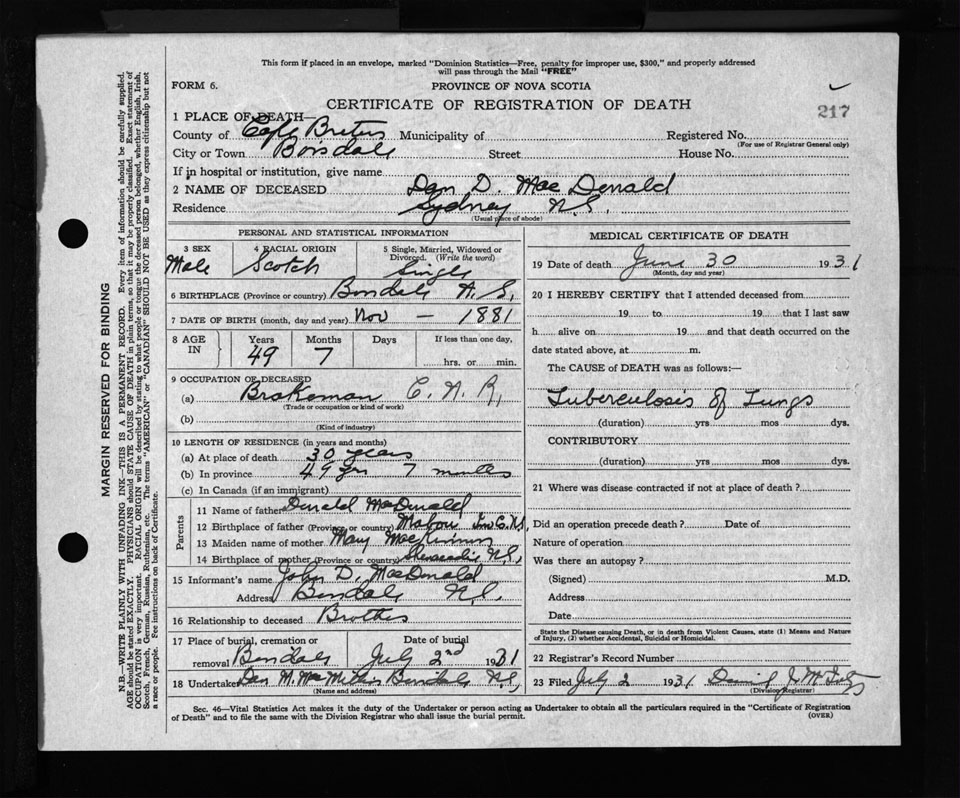 This form if placed in an envelope, marked "Dominion Statistics—Free, penalty for improper use, $300," and properly addressed
will pass through the Mail "FREE"
FORM 6.
PROVINCE OF NOVA SCOTIA
CERTIFICATE OF REGISTRATION OF DEATH
217
1 PLACE OF DEATH—
County of Cape Breton Municipality of Registered No.
(For use of Registrar General only)
City or Town Boisdale Street House No.
If in hospital or institution, give name
2 NAME OF DECEASED Dan D. MacDonald
Residence Sydney N.S.
(Usual place of abode)
PERSONAL AND STATISTICAL INFORMATION
3 SEX
Male
4 RACIAL ORIGIN
Scotch
5 Single, Married, Widowed or
Divorced. (Write the word)
Single
6 BIRTHPLACE (Province or country) Boisdale N.S.
7 DATE OF BIRTH (month, day and year) Nov — 1881
8 AGE
IN
Years Months Days If less than one day,
49 7 hrs. or min.
9 OCCUPATION OF DECEASED
(a) Brakeman C. N. R.
(Trade or occupation or kind of work)
(b)
(Kind of industry)
10 LENGTH OF RESIDENCE (in years and months)
(a) At place of death 30 years
(b) In province 49 yrs 7 months
(c) In Canada (if an immigrant)
Parents
11 Name of father Donald MacDonald
12 Birthplace of father (Province or country) Mabou Inv C. N.S.
13 Maiden name of mother Mary MacKinnon
14 Birthplace of mother (Province or country) N.S.
15 Informant's name John D. MacDonald
Address Boisdale N.S.
16 Relationship to deceased Brother
17 Place of burial, cremation or
removal Boisdale
Date of burial
July 2nd 1931
18 Undertaker Dan M. Boisdale N.S.
(Name and address)
MEDICAL CERTIFICATE OF DEATH
19 Date of death June 30 1931
(Month, day and year)
20 I HEREBY CERTIFY that I attended deceased from
19 to 19 that I last saw
h alive on 19 and that death occurred on the
date stated above, at m.
The CAUSE of DEATH was as follows:—
Tuberculosis of Lungs
(duration) yrs mos dys.
CONTRIBUTORY
(duration) yrs mos dys.
21 Where was disease contracted if not at place of death?
Did an operation precede death? Date of
Nature of operation
Was there an autopsy?
(Signed) M.D.
Address
Date
State the Disease causing Death, or in death from Violent Causes, state (1) Means and Nature
of Injury, (2) whether Accidental, Suicidal or Homicidal.
22 Registrar's Record Number
23 Filed July 2 1931
(Division Registrar)
Sec. 46—Vital Statistics Act makes it the duty of the Undertaker or person acting as Undertaker to obtain all the particulars required in the "Certificate of Registration
of Death" and to file the same with the Division Registrar who shall issue the burial permit.
(OVER)
MARGIN RESERVED FOR BINDING
N.B.—WRITE PLAINLY WITH UNFADING INK—THIS IS A PERMANENT RECORD. Every item of information should be carefully supplied.
AGE should be stated EXACTLY. PHYSICIANS should STATE CAUSE OF DEATH in plain terms, so that it may be properly classified. Exact statement of
OCCUPATION is very important. RACIAL ORIGIN will be described by stating to what people or tongue the deceased person belonged, whether English, Irish,
Scotch, French, German, Russian, Ruthenian, etc. The terms "AMERICAN" or "CANADIAN" SHOULD NOT BE USED as they express citizenship but not
a race or people. Fee instructions on back of Certificate.